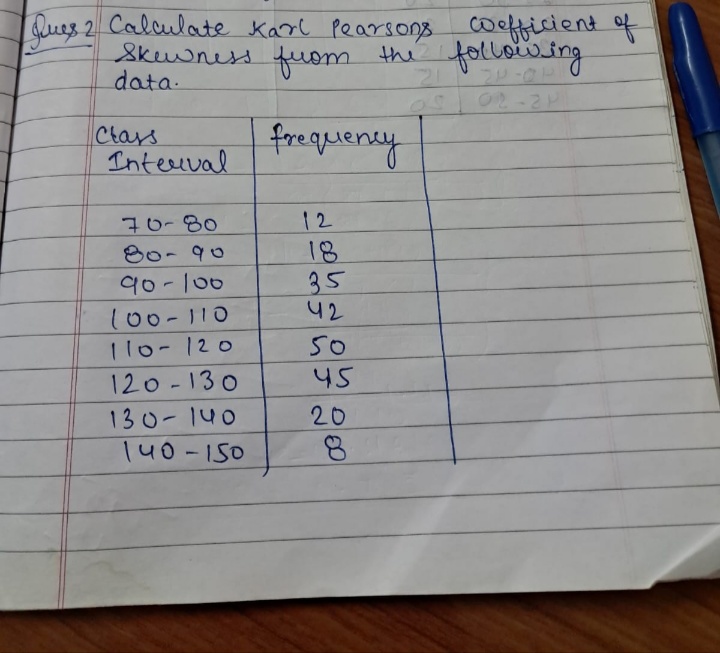 Ques 2 Calculate Karl Pearsons coefficient of
Skewness from the following
data.
Class Interval frequency
70-80 12
80-90 18
90-100 35
100-110 42
110-120 50
120-130 45
130-140 20
140-150 8